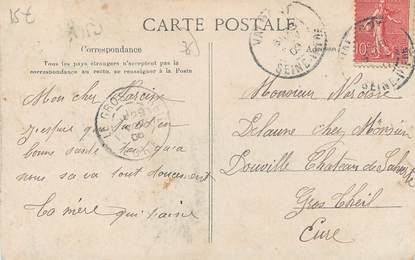 15€
CARTE POSTALE
Correspondance
Tous les pays étrangers n'acceptent pas la
correspondance au recto, se renseigner à la Poste
Mon cher Narcisse
j'espuis que tu est en
bonne santé tant qua a
nous sa va tout doucement
Ta mère qui t'aime
SEINE-INFRE
SEINE-INFRE
LE GROS
10
Monsieur Narcisse
Delaune chez Monsieur
Douville Chateau de
Gros Theil
Eure